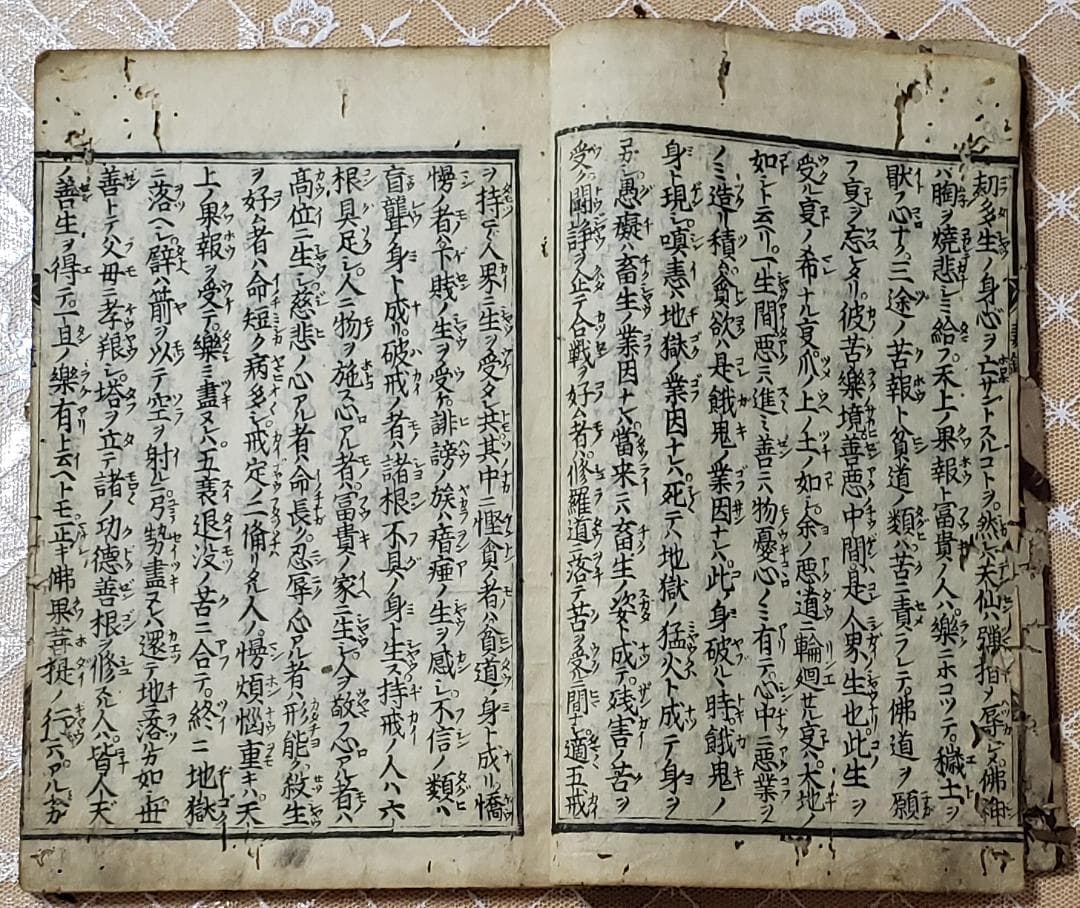 契多生ノ身心ヲ亡サントスルコトヲ。然レハ天仙ハ彈指ノ辱シメ佛神
ハ胸ヲ燒悲ミ給フ。天上ノ果報ト冨貴ノ人ハ。樂ニホコツテ。穢土ヲ
猒フ心ナク。三途ノ苦報ト貧道ノ類ハ。苦ニ責ラレテ。佛道ヲ願
フ叓ヲ忘レタリ。彼苦樂境善悪中間。是人界ノ生也。此生ヲ
受ル叓ノ希ナル叓爪ノ上ノ土ノ如シ。余ノ悪道ニ輪廻セル叓ハ。大地ノ
如シト云ヘリ。一生間悪ニハ進ミ善ニハ物憂心ノミ有テ。心中ニ悪業ヲ
ノミ造リ積ム。貪欲ハ是餓鬼ノ業因ナレハ。此身破ルヽ時餓鬼ノ
身ト現シ。嗔恚ハ地獄ノ業因ナレハ。死テ地獄ノ猛火ト成テ身ヲ
コガシ。愚癡ハ畜生ノ業因ナレハ。當来ニハ畜生ノ姿ト成テ。残害ノ苦ヲ
受ク。闘諍ヲ企テ合戰ヲ好ム者ハ。修羅道ニ落テ苦ヲ受ル間ナシ。適〻五戒
ヲ持テ。人界ニ生ヲ受タレ共。其中ニ慳貪ノ者ハ貧道ノ身ト成ル。憍
慢ノ者ハ下賎ノ生ヲ受ケ。誹謗ノ族ハ瘖瘂ノ生ヲ感シ。不信ノ類ハ
盲聾ノ身ト成リ。破戒ノ者ハ諸根不具ノ身ト生ス。持戒ノ人ハ六
根具足シ。人ニ物ヲ施ス心アル者ハ。冨貴ノ家ニ生シ。人ヲ敬フ心アル者ハ
髙位ニ生シ。慈悲ノ心アル者ハ命長ク。忍辱ノ心アル者ハ形能ク。殺生
ヲ好ム者ハ命短ク病多シ。戒定ノ二ヲ備リタル人ハ。慢煩惱重キハ。天
上ノ果報ヲ受テ。樂ミ盡ヌレハ。五衰退没ノ苦ニ合テ。終ニ地獄
ニ落ヘシ。譬ハ箭ヲ以テ空ヲ射ルニ。弓勢盡ヌレハ還テ地ニ落ルカ如シ。世
善トテ父母ニ孝養シ。塔ヲ立テ諸ノ功德善根ヲ修スル人ハ。皆人天
ノ善生ヲ得テ。一旦ノ樂有ト云ヘトモ。正キ佛果菩提ノ行ニハアルカ